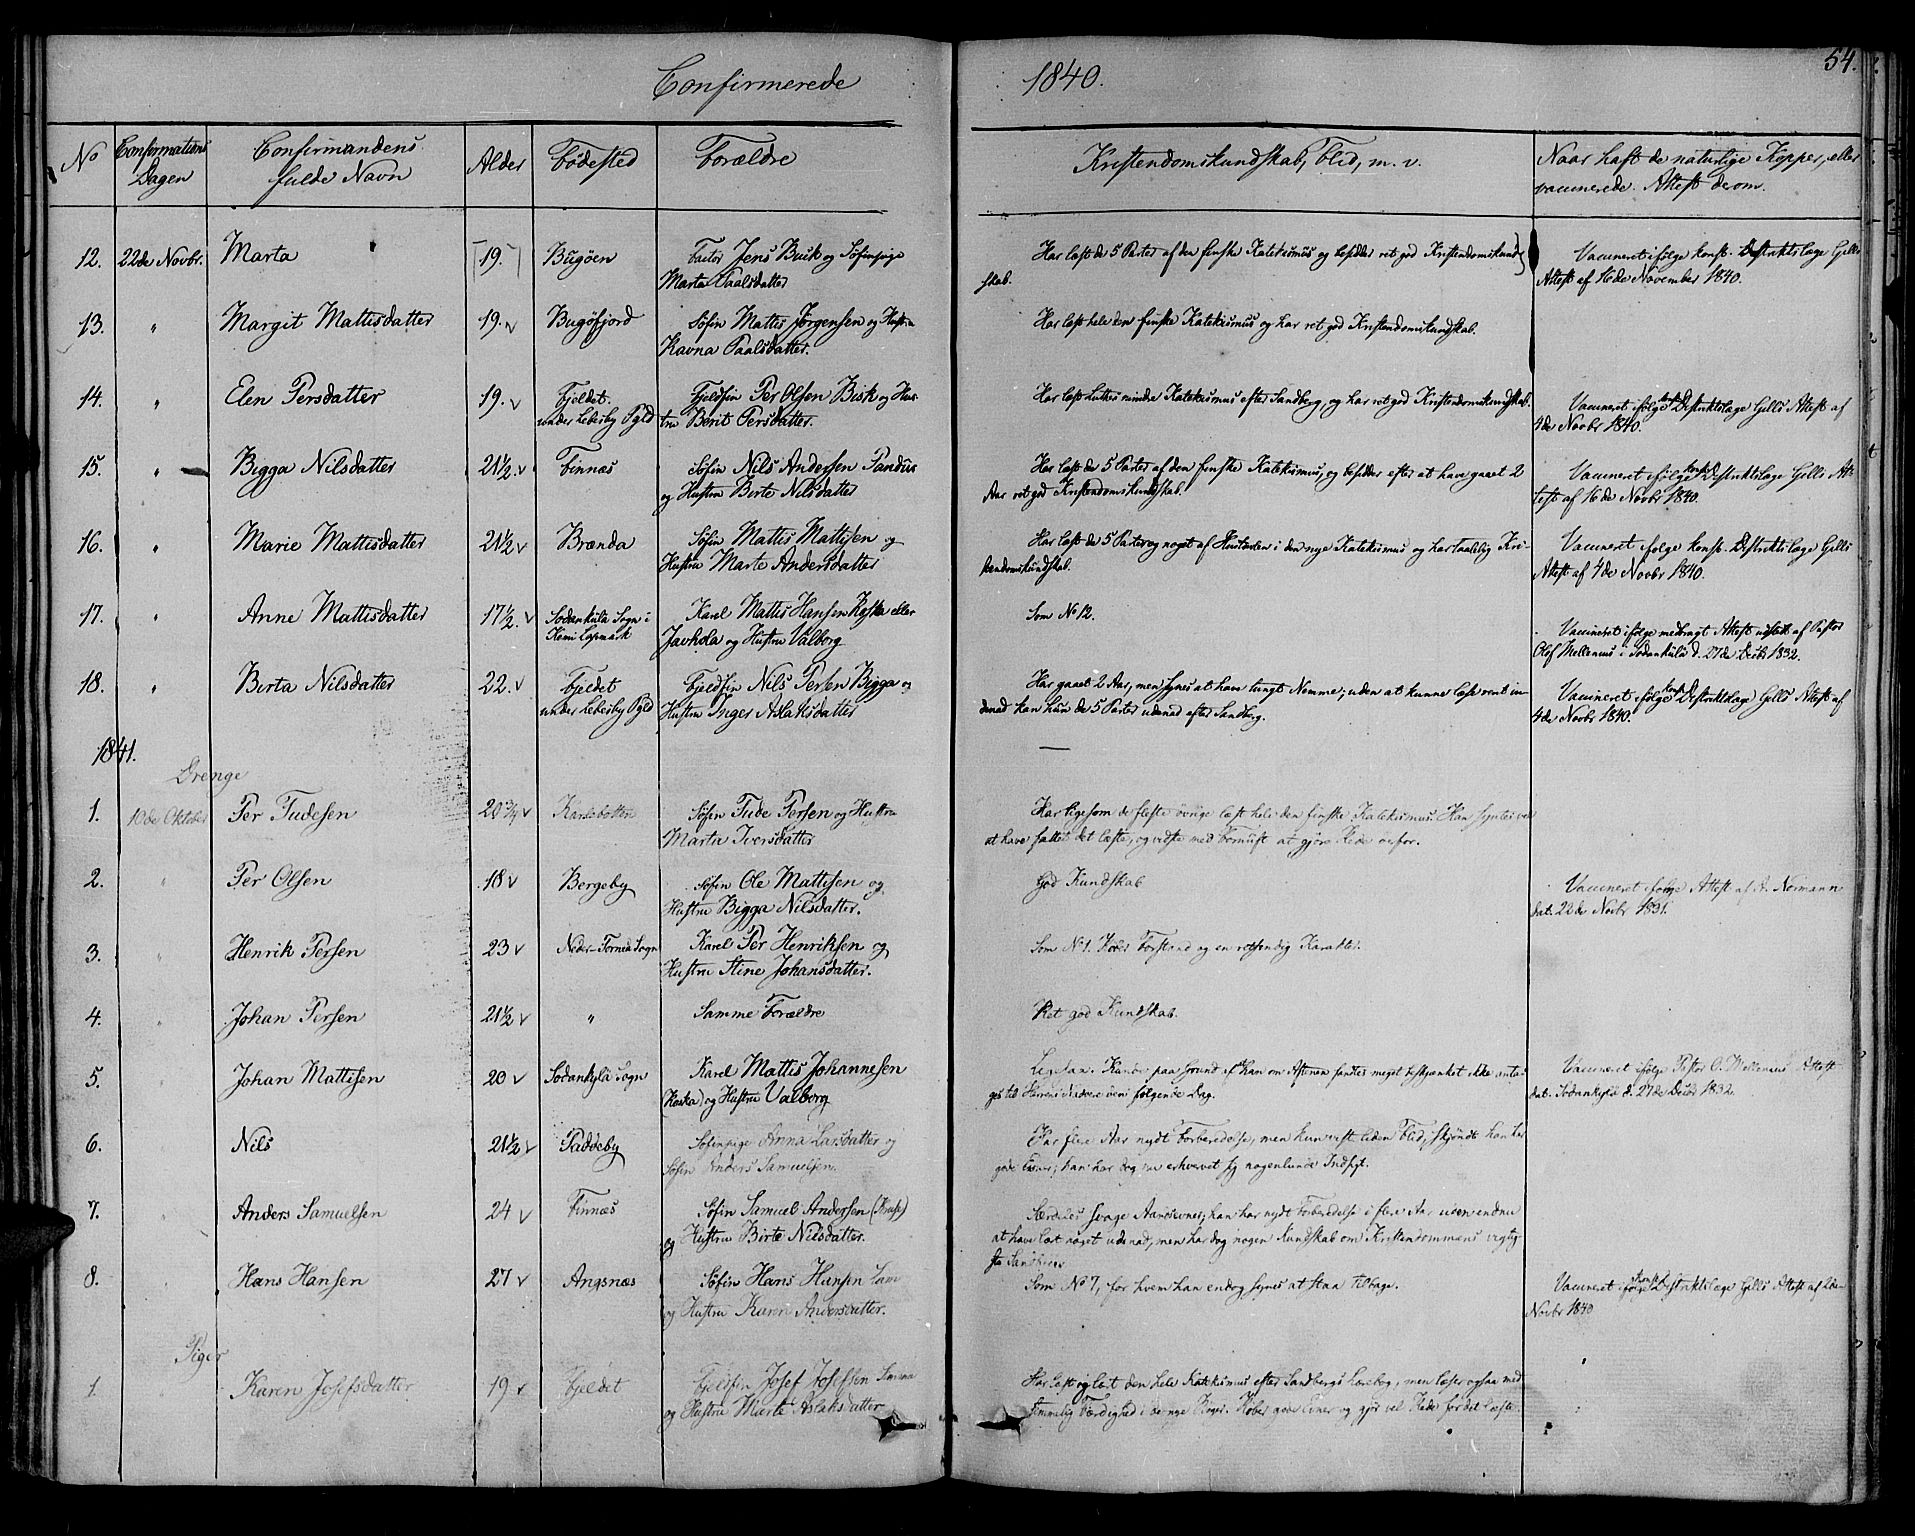 Confirmerede 1840. 54.
No Confirmations Dagen Confirmandens fulde Navn Alder Fødested Forældre Kristendomskundskab, Flid, m. v. Naar haft de naturlige Kopper, eller vaccinerede. Attest derom.
12. 22de Novbr. Marta 19. Bugøen Factor Jens Buck og Søfinpige
Marta Paalsdatter
Har læst de 5 Parter af den finske Katekismus og besidder ret god Kristendomskund-
skab.
Vaccineret ifølge konst. Distriktslæge Gills
Attest af 16de November 1840.
13. " Margit Mattisdatter 19. Bugøfjord Søfin Mattis Jørgensen og Hustru
Ravna Paalsdatter.
Har læst hele den finske Katekismus og har ret god Kristendomskundskab.
14. " Elen Persdatter 19. Fjeldet Fjeldfin Per Olsen Bisk og Hus-
under Lebesby Pgld tru Berit Persdatter.
Har læst Luthes mindre Katekismus efter Sandberg, og har ret god Kristendomskundskab.
Vaccineret ifølge konst. Distriktslæge Gills Attest af
4de Novbr 1840.
15. " Bigga Nilsdatter 21½ Finnæs Søfin Nils Andersen Pandur
og Hustru Birte Nilsdatter
Har læst de 5 Parter af den finske Katekismus, og besidder efter at have gaaet 2
Aar ret god Kristendomskundskab.
Vaccineret ifølge konst. Distriktslæge Gills At-
test af 16de Novbr 1840.
16. " Marie Mattisdatter 21½ Brænda Søfin Mattis Mattisen og
Hustru Marte Andersdatter
Har læst de 5 Parter og noget af Hustavlen i den nye Katekismus og har taalelig Kri-
stendomskundskab.
Vaccineret ifølge konst. Distriktslæge Gills
Attest af 4de Novbr 1840.
17. " Anne Mattisdatter 17½ Sodankula Sogn i Karel Mattis Hansen Koska eller
Kemi Lapmark Javhola og Hustru Valborg
Som No 12.
Vaccineret ifølge medbragt Attest udstædt af Pastor
Olof Mellenius i Sodankula d. 27de Decbr 1832.
18. " Berta Nilsdatter 22. Fjeldet Fjeldfin Nils Persen Bigga og
under Lebesby Pgld Hustru Inger Aslaksdatter
Har gaaet 2 Aar, men synes at have tungt Nemme; uden at kunne læse rent in-
denad kan hun de 5 Parter udenad efter Sandberg.
Vaccineret ifølge konst. Distriktslæge Gills Attest af
4de Novbr 1840.
1841.
Drenge
1. 10de Oktober Per Tudesen 20¾ Karlebotten Søfin Tude Persen og Hustru
Martha Iversdatter
Har ligesom de fleste øvrige læst hele den finske Katekismus. Han syntes vel
at have fattet det læste, og vidste med Fornuft at gjøre Rede derfor.
2. " Per Olsen 18 Bergeby Søfin Ole Mattisen og
Hustru Bigga Nilsdatter.
God Kundskab
Vaccineret ifølge Attest af A. Normann
dat. 22de Novbr 1831.
3. " Henrik Persen 23 Neder-Torneå Sogn Karel Per Henriksen og
Hustru Stine Johansdatter.
Som No 1. Forstand og en retsindig Karakter.
4. " Johan Persen 21½ " Samme Forældre
Ret god Kundskab.
5. " Johan Mattisen 20 Sodankylä Sogn Karel Mattis Johannesen
Koska) og Hustru Valborg
Ligesaa. Kunde paa Grund af han om Aftenen fandtes meget beskjænket ikke anta-
ges til Herrens Nadvere den følgende Dag.
Vaccineret ifølge Pastor O. Mellenius Attest
dat. Sodankylä d. 27de Decbr 1832.
6. " Nils 21½ Paddeby Søfinpige Anna Larsdatter og
Søfin Anders Samuelsen.
Har flere Aar nydt Forberedelse, men kun vist liden Flid, skjøndt han har
gode Evner; han har dog nu erhvervet sig nogenlunde Indsigt.
7. " Anders Samuelsen 24 Finnæs Søfin Samuel Andersen
og Hustru Birte Nilsdatter.
Særdeles svage Aandsevner; han har nydt Forberedelse i flere Aar uden endnu
at have lært noget udenad, men har dog nogen Kundskab om Kristendommens vigtig-
ste Sandheder
8. " Hans Hansen 27 Angsnæs Søfin Hans Hansen
og Hustru Karen Andersdatter.
Som No 7, for hvem han endog synes at staa tilbage.
Vaccineret ifølge konst. Distriktslæge Gills Attest af
Novbr 1840
Piger
1. Karen Josefsdatter 19 Fjeldet Fjeldfin Josef Josefsen
og Hustru Marte Aslaksdatter
Har læst og lært den hele Katekismus efter Sandbergs Lærebog, men læser ogsaa med
temmelig Færdighed i de nye Bøger. Røber gode Evner og gjør vel Rede for det læste.